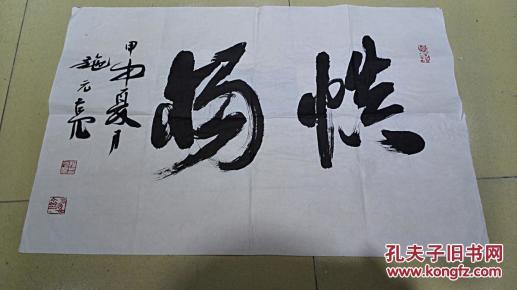 慎獨
甲申夏月
施元亮
孔夫子旧书网
www.kongfz.com